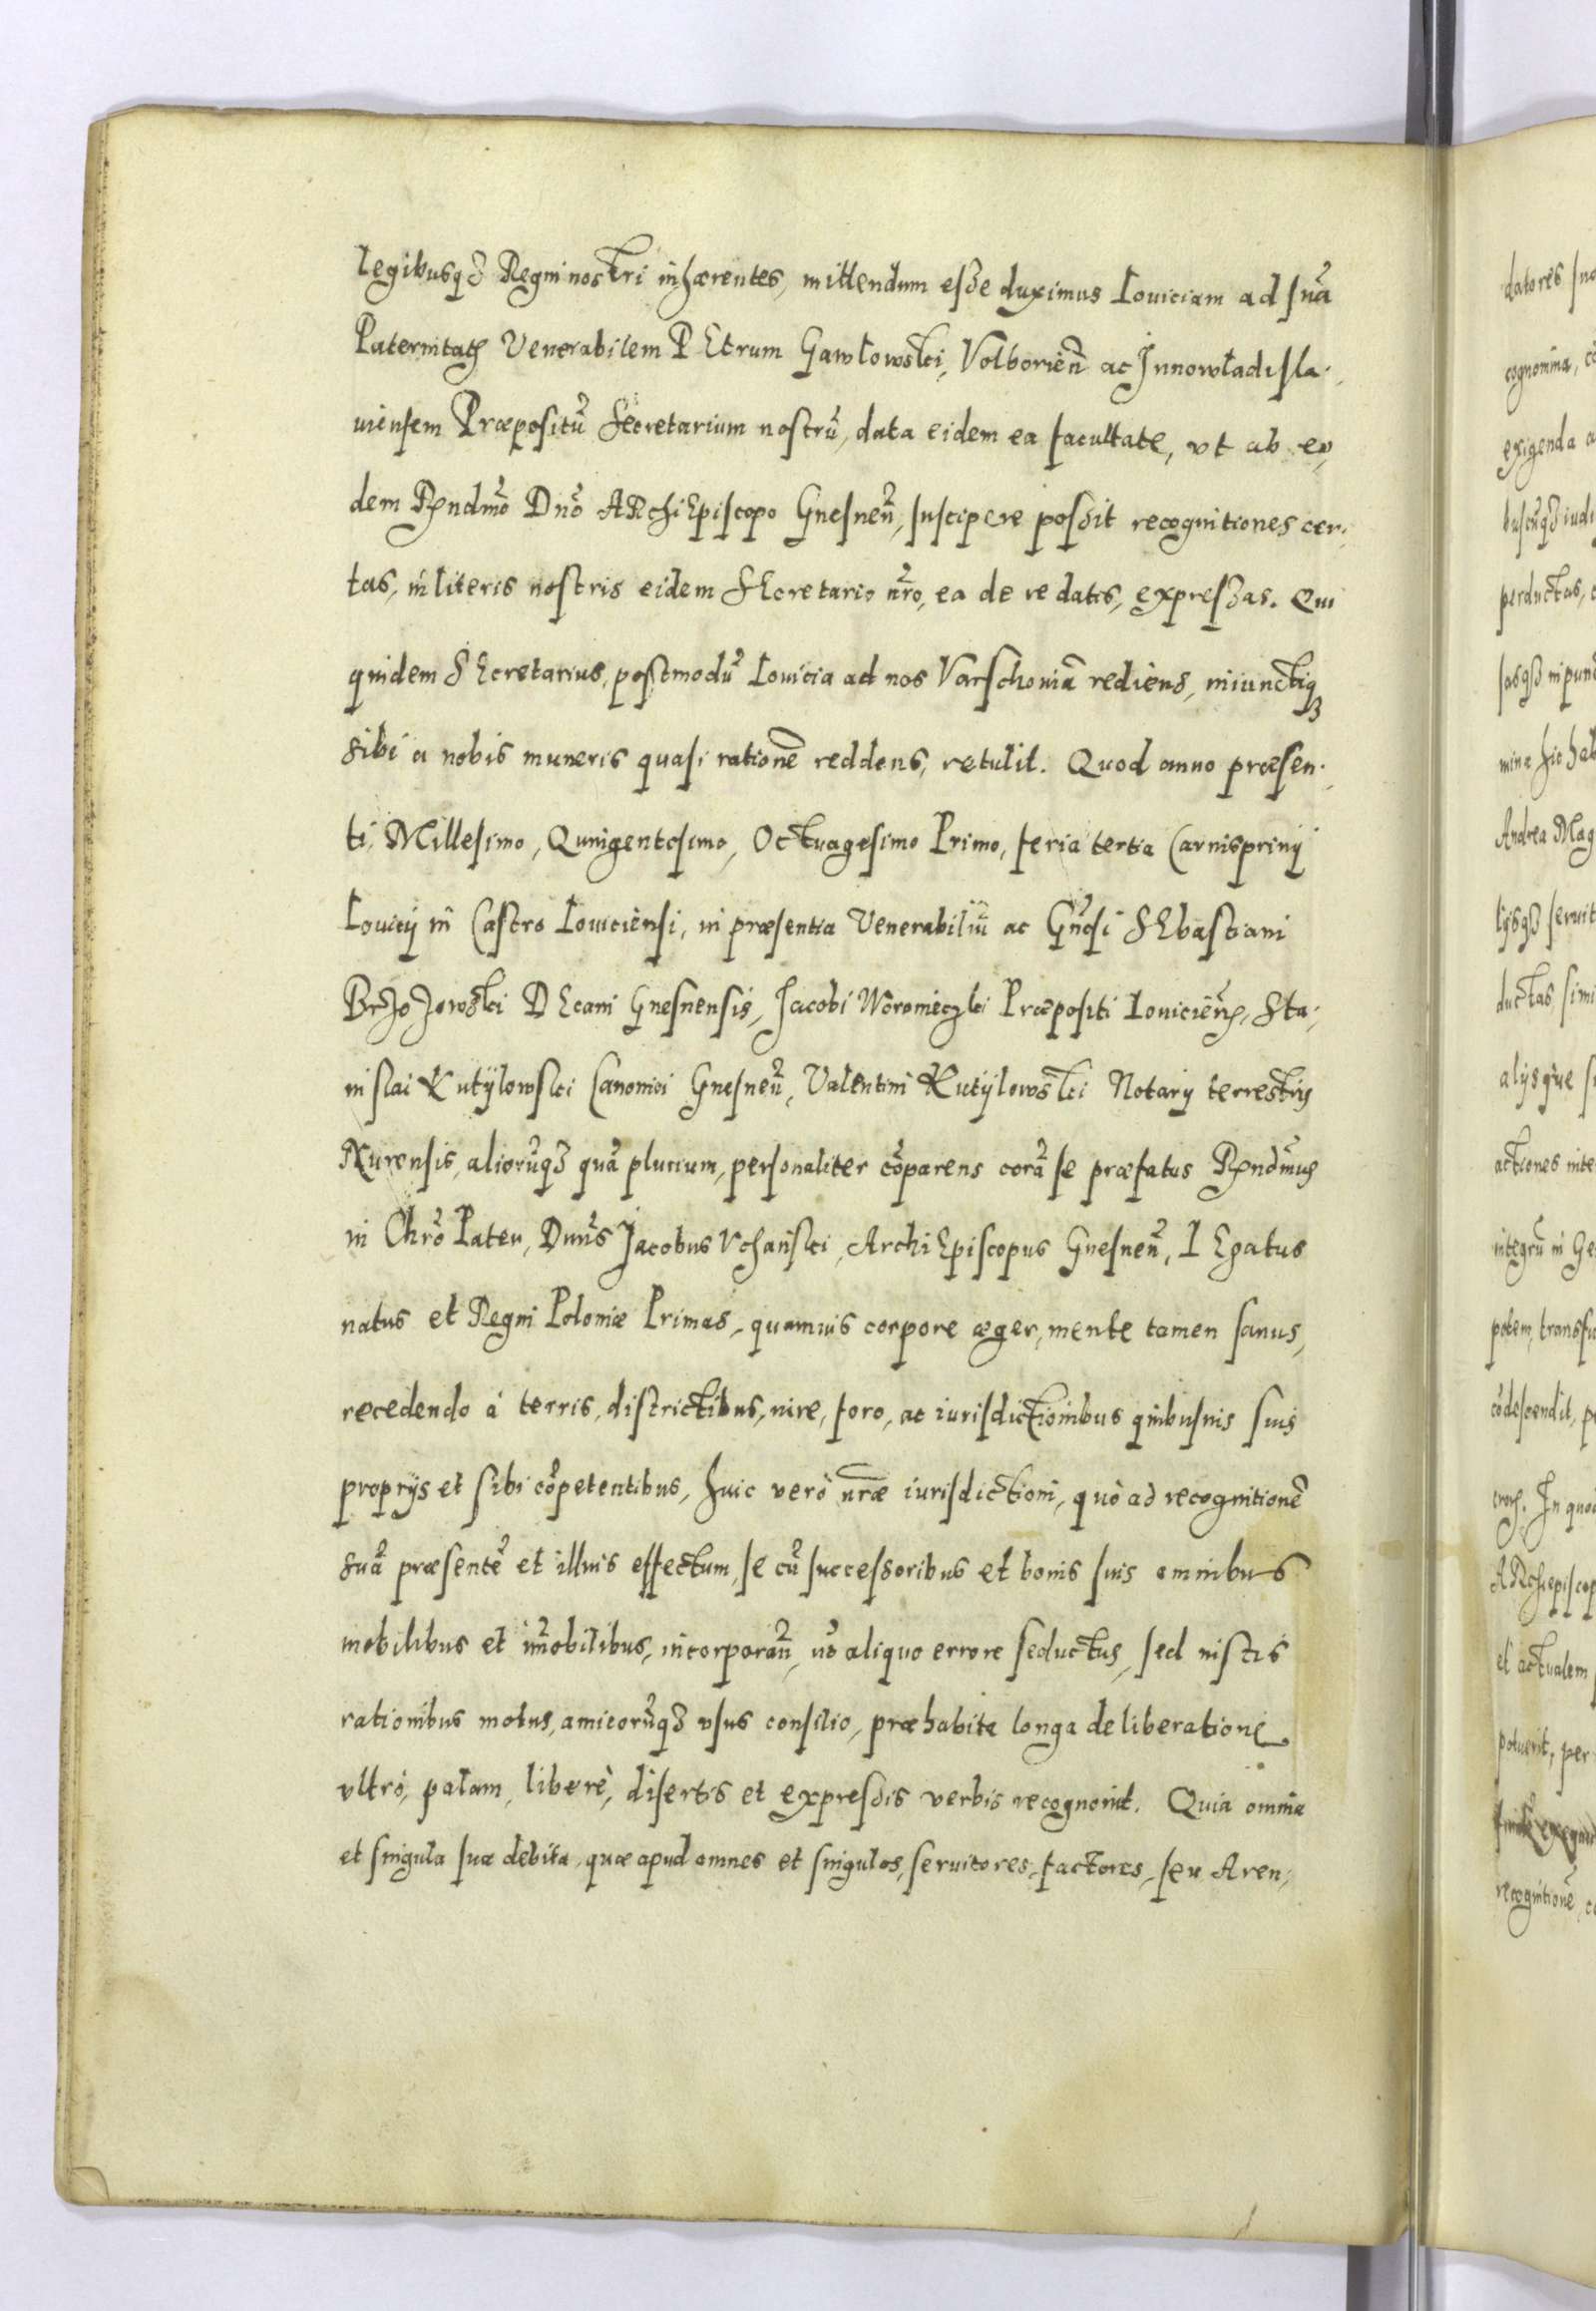 legibusq3 Regni nostri inhærentes, mittendum esse duximus Louiciam ad suã
Paternitatẽ Venerabilem PEtrum Gawlowski, Volborieñ ac Jnnowladisla-
uiensem Præpositũ Secretarium nostrũ, data eidem ea facultate, vt ab eo,
dem Rndmõ Dnõ ARchiEpiscopo Gnesneñ, suscipere possit recognitiones cer-
tas, in literis nostris eidem SEcretario nr̃o, ea de re datis, expressas. Qui
quidem SEcretarius, postmodũ Louicia ad nos Varschouiã rediens, iniunctiq3
sibi a nobis muneris quasi rationẽ reddens, retulit. Quod anno præsen-
ti, Millesimo, Quingentesimo, Octuagesimo Primo, feria tertia Carnispriuij
Louicij in Castro Louiciensi, in præsentia Venerabiliũ ac Gñosi SEbastiani
Brzozowski DEcani Gnesnensis, Jacobi Woronieczki Præpositi Louicieñ, Sta-
nislai Kutÿlowski Canonici Gnesneñ, Valentini Kutÿlowski Notarij terrestris
Nurensis, aliorũq3 quã plurium, personaliter cõparens corã se præfatus Rndmus
in Chrõ Pater, Dnus Jacobus Vchański, ArchiEpiscopus Gnesneñ, LEgatus
natus et Regni Poloniæ Primas, quamuis corpore æger, mente tamen sanus,
recedendo à terris, districtibus, iure, foro, ac iurisdictionibus quibusuis suis
proprijs et sibi cõpetentibus, huic verò nr̃æ iurisdictioni, quò ad recognitionẽ
suã præsentẽ et illius effectum, se cũ successoribus et bonis suis omnibus
mobilibus et im̃obilibus, incorporañ, nõ aliquo errore seductus, sed iustis
rationibus motus, amicorũq3 vsus consilio, præhabita longa deliberatione
vltrò, palam, liberè, disertis et expressis verbis recognouit. Quia omnia
et singula sua debita, quæ apud omnes et singulos, seruitores, factores, seu Aren-